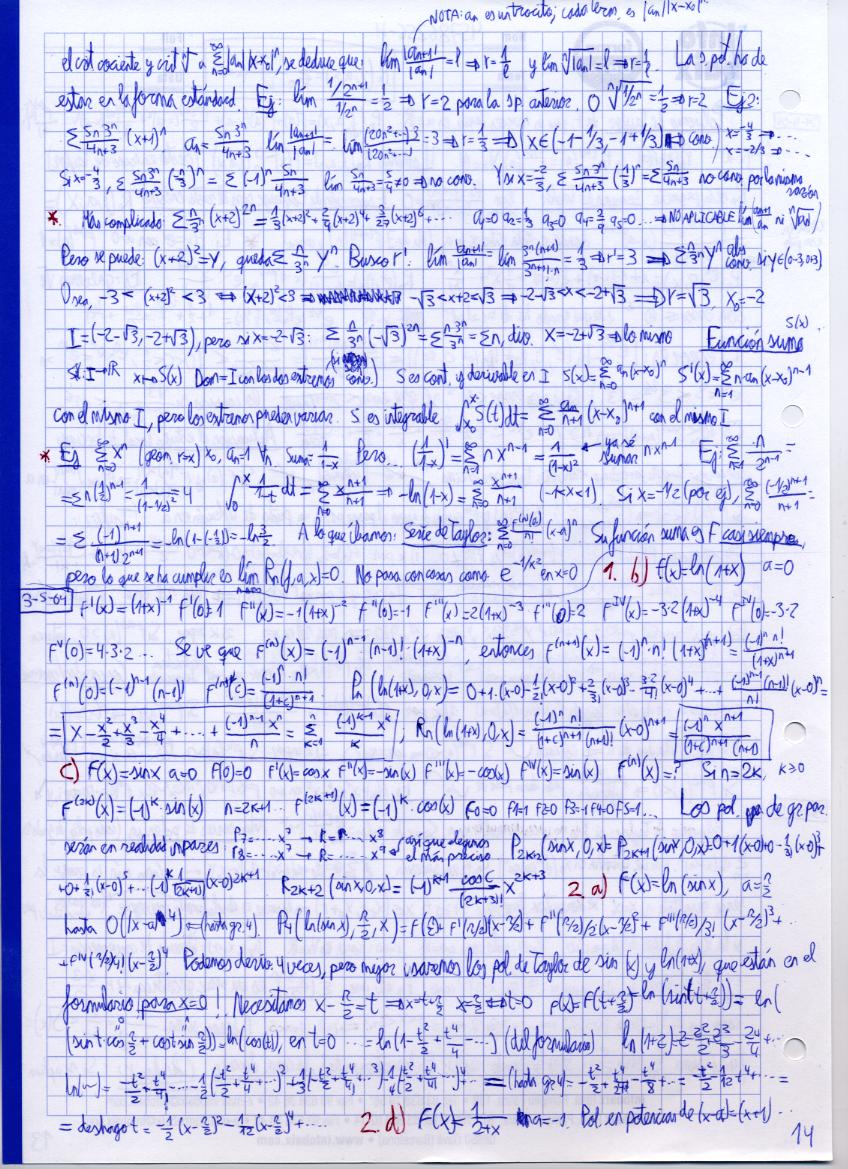 NOTA: an es un trocito; cada térm. es |an||x-x₀|ⁿ
el crit cociente y crit √ a Σ|an||x-x₀|ⁿ, se deduce que: lím |an+1|/|an| = l ⇒ r = 1/l y lím ⁿ√|an| = l ⇒ r = 1/l. La s. pot. ha de
estar en la forma estándard. Ej: lím (1/2ⁿ⁺¹)/(1/2ⁿ) = 1/2 ⇒ r=2 para la sp. anterior. O ⁿ√(1/2ⁿ) = 1/2 ⇒ r=2 Ej 2:
Σ 5n3ⁿ/(4n+3) (x+1)ⁿ an = 5n3ⁿ/(4n+3) lím |an+1|/|an| = lím (20n²+...)/(20n²+...) · 3 = 3 ⇒ r = 1/3 ⇒ (x∈(-1-1/3, -1+1/3) ⇒ conv.) x=-4/3 ⇒ .... x=-2/3 ⇒ ...
Si x=-4/3, Σ 5n3ⁿ/(4n+3) (-1/3)ⁿ = Σ (-1)ⁿ 5n/(4n+3) lím 5n/(4n+3) = 5/4 ≠ 0 ⇒ no conv. Y si x=-2/3, Σ 5n3ⁿ/(4n+3) (1/3)ⁿ = Σ 5n/(4n+3) no conv por la misma razón
* Más complicado: Σ n/3ⁿ (x+2)²ⁿ = 1/3 (x+2)² + 2/9 (x+2)⁴ + 3/27 (x+2)⁶ + ... a₁=0 a₂=1/3 a₃=0 a₄=2/9 a₅=0 ... ⇒ NO APLICABLE (lím an+1/an ni ⁿ√|an|)
Pero se puede: (x+2)² = Y, queda Σ n/3ⁿ Yⁿ. Busco r': lím |an+1|/|an| = lím 3ⁿ(n+1)/(3ⁿ⁺¹·n) = 1/3 ⇒ r'=3 ⇒ Σ n/3ⁿ Yⁿ abs conv. si Y∈(0-3,0+3)
O sea, -3 < (x+2)² < 3 ⇔ (x+2)² < 3 ⇒ -√3 < x+2 < √3 ⇒ -2-√3 < x < -2+√3 ⇒ r=√3, x₀=-2
I=(-2-√3, -2+√3), pero si x=-2-√3: Σ n/3ⁿ (-√3)²ⁿ = Σ n3ⁿ/3ⁿ = Σn, div. X=-2+√3 ⇒ lo mismo Función suma S(x)
I→R x↦S(x) Dom=I con los dos extremos (si conv.) S es cont. y derivable en I S(x)=Σ an(x-x₀)ⁿ S'(x)=Σ n·an(x-x₀)ⁿ⁻¹
con el mismo I, pero los extremos pueden variar. S es integrable ∫ S(t)dt = Σ an/(n+1) (x-x₀)ⁿ⁺¹ con el mismo I
* Ej Σ xⁿ (geom, r=x) x₀, an=1 ∀n Suma = 1/(1-x) Pero... (1/(1-x))' = Σ n xⁿ⁻¹ = 1/(1-x)² ← ya sé sumar nxⁿ⁻¹ Ej: Σ n/2ⁿ⁻¹ =
= Σ n(1/2)ⁿ⁻¹ = 1/(1-1/2)² = 4 ∫ 1/(1-t) dt = Σ xⁿ⁺¹/(n+1) ⇒ -ln(1-x) = Σ xⁿ⁺¹/(n+1) (-1<x<1). Si x=-1/2 (por ej), Σ (-1/2)ⁿ⁺¹/(n+1) =
= Σ (-1)ⁿ⁺¹/((n+1)2ⁿ⁺¹) = -ln(1-(-1/2)) = -ln 3/2 A lo que íbamos: Serie de Taylor: Σ f⁽ⁿ⁾(a)/n! (x-a)ⁿ. Su función suma es F casi siempre,
pero lo que se ha cumplir es lím Rn(f,a,x)=0. No pasa con cosas como e^(-1/x²) en x=0 1. b) f(x)=ln(1+x) a=0
3-5-04 f'(x)=(1+x)⁻¹ f'(0)=1 f''(x)=-1(1+x)⁻² f''(0)=-1 f'''(x)=2(1+x)⁻³ f'''(0)=2 f^IV(x)=-3·2(1+x)⁻⁴ f^IV(0)=-3·2
f^V(0)=4·3·2... Se ve que f⁽ⁿ⁾(x)=(-1)ⁿ⁻¹·(n-1)!·(1+x)⁻ⁿ, entonces f⁽ⁿ⁺¹⁾(x)=(-1)ⁿ·n!(1+x)⁻⁽ⁿ⁺¹⁾ = (-1)ⁿ n!/(1+x)ⁿ⁺¹
f⁽ⁿ⁾(0)=(-1)ⁿ⁻¹(n-1)! f⁽ⁿ⁺¹⁾(c)=(-1)ⁿ·n!/(1+c)ⁿ⁺¹. Pn(ln(1+x),0,x)=0+1·(x-0)-1/2!(x-0)²+2/3!(x-0)³-3·2/4!(x-0)⁴+...+(-1)ⁿ⁻¹(n-1)!/n! (x-0)ⁿ=
= x-x²/2+x³/3-x⁴/4+....+(-1)ⁿ⁻¹xⁿ/n = Σ (-1)ᵏ⁻¹xᵏ/k ; Rn(ln(1+x),0,x)=(-1)ⁿ n!/((1+c)ⁿ⁺¹(n+1)!) (x-0)ⁿ⁺¹ = (-1)ⁿ xⁿ⁺¹/((1+c)ⁿ⁺¹(n+1))
c) f(x)=sinx a=0 f(0)=0 f'(x)=cosx f''(x)=-sin(x) f'''(x)=-cos(x) f^IV(x)=sin(x) f⁽ⁿ⁾(x)=? Si n=2k, k≥0
f⁽²ᵏ⁾(x)=(-1)ᵏ·sin(x) n=2k+1... f⁽²ᵏ⁺¹⁾(x)=(-1)ᵏ·cos(x) f0=0 f1=1 f2=0 f3=-1 f4=0 f5=1... Los pol. de gr par
serán en realidad impares: P7=.....x⁷ → R=.... x⁸ P8=.....x⁷ → R=.... x⁹ así que elegimos el más preciso P2k+2(sinx,0,x)=P2k+1(sinx,0,x)=0+1(x-0)+0-1/3!(x-0)³+
+0+1/5!(x-0)⁵+...(-1)ᵏ 1/(2k+1)! (x-0)²ᵏ⁺¹ R2k+2(sinx,0,x)=(-1)ᵏ⁺¹ cosc/(2k+3)! x²ᵏ⁺³ 2.a) f(x)=ln(sinx), a=π/2
hasta O((x-a)⁴) = (hasta gr. 4). P4(ln(sinx),π/2,x)=f(π/2)+f'(π/2)(x-π/2)+f''(π/2)/2(x-π/2)²+f'''(π/2)/3!(x-π/2)³+
+f^IV(π/2)/4!(x-π/2)⁴. Podemos derivar 4 veces, pero mejor usaremos los pol. de Taylor de sin(x) y ln(1+x), que están en el
formulario ¡para x=0! Necesitamos x-π/2=t ⇒ x=t+π/2 x=π/2 ⇔ t=0 f(x)=f(t+π/2)=ln(sin(t+π/2))=ln(
(sint cos π/2 + cost sin π/2))=ln(cos(t)), en t=0 ...=ln(1-t²/2+t⁴/4!-...) (del formulario) ln(1+z)=z-z²/2+z³/3-z⁴/4+...
ln(~)=-t²/2+t⁴/4!....-1/2(-t²/2+t⁴/4!+...)²+1/3(-t²/2+t⁴/4!+...)³-1/4(-t²/2+t⁴/4!-...)⁴...=(hasta gr 4)=-t²/2+t⁴/24-t⁴/8+...=-t²/2-1/12 t⁴+...=
= deshago t=-1/2(x-π/2)²-1/12(x-π/2)⁴+.... 2.d) f(x)=1/(2+x) a=-1. Pol en potencias de (x-a)=(x+1)...
14